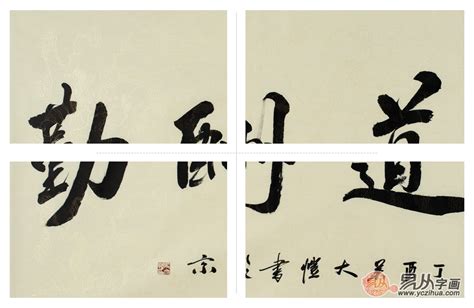 道酬勤
丁酉吴大愷書於京
易从字画
www.yczihua.com